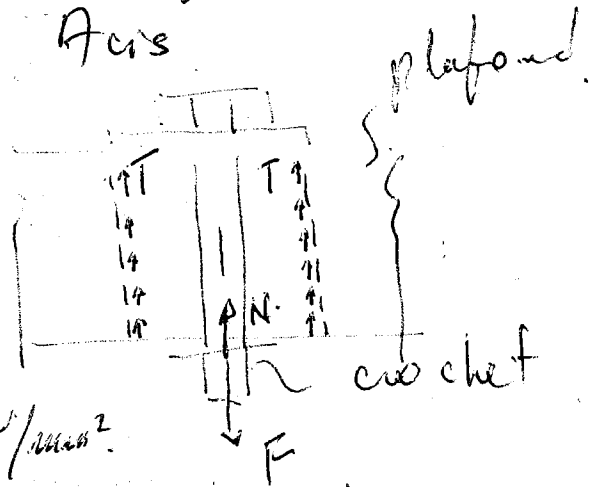 Acis
plafond.
T T
N.
crochet
/mm².
F